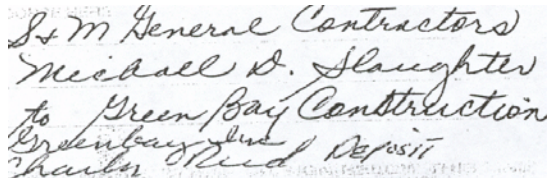 S & M General Contractors
Michael D. Slaughter
to Green Bay Construction
Greenbay Inc
Charles Reed Deposit